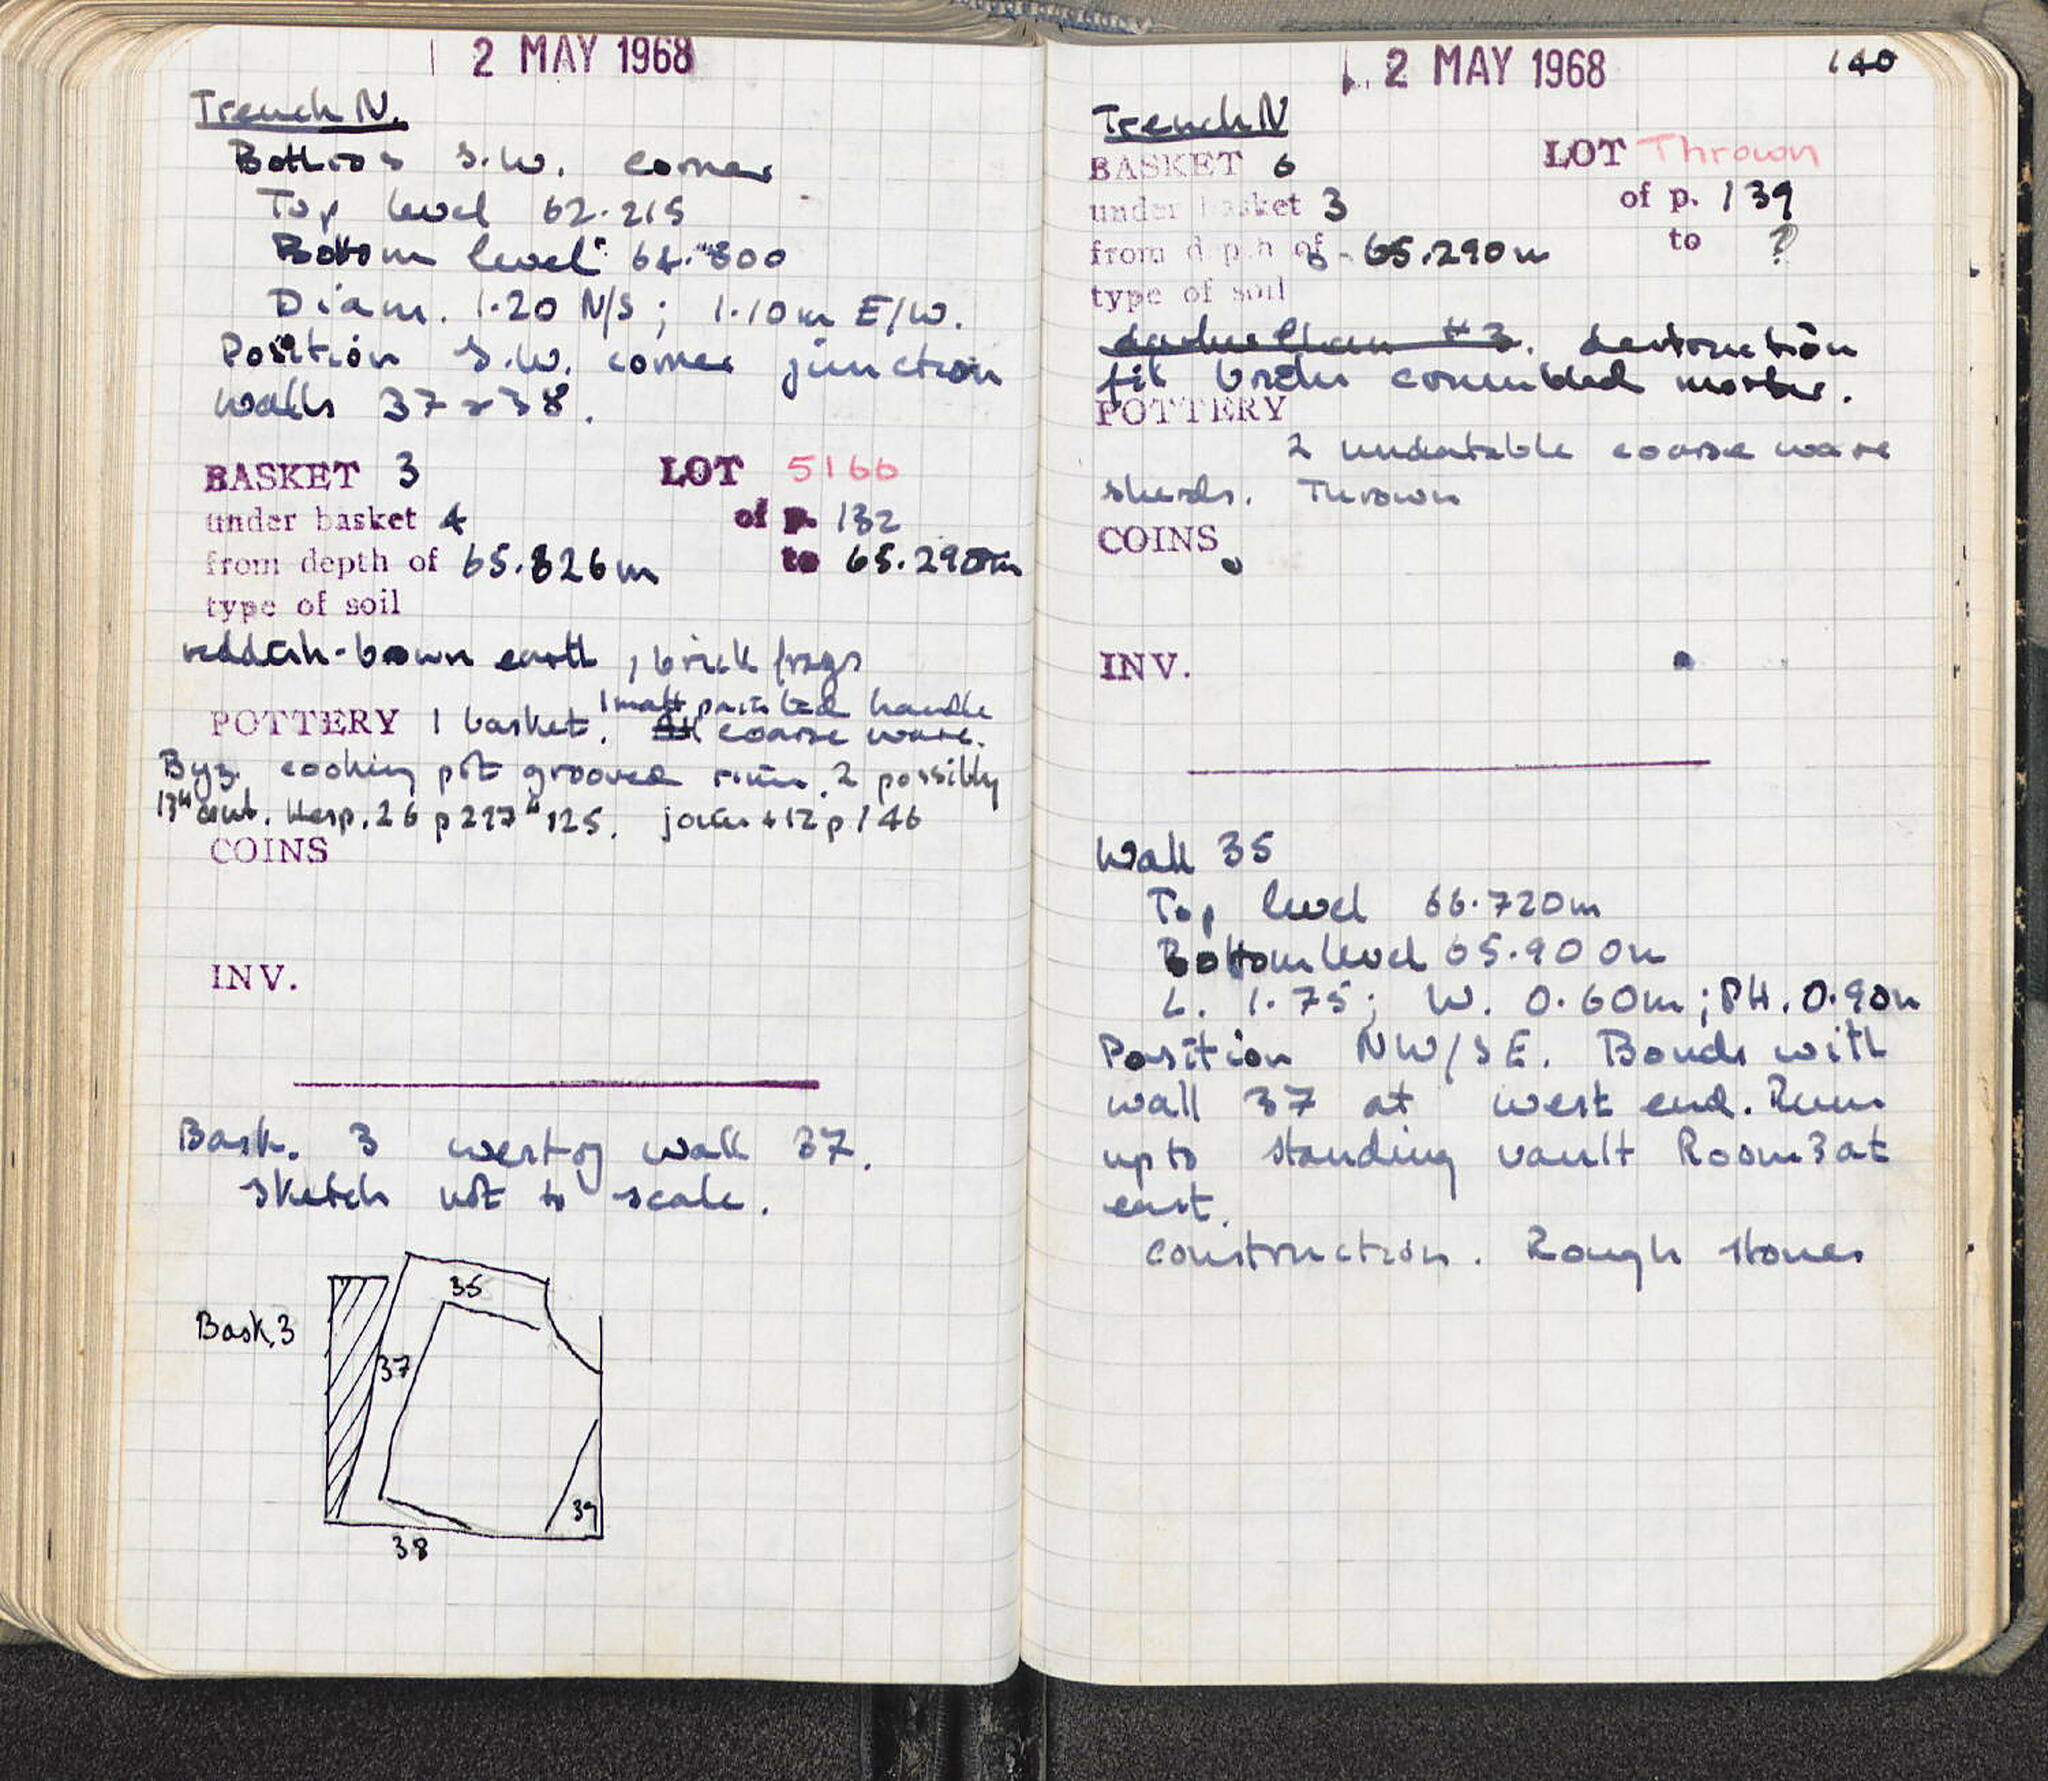 2 MAY 1968
Trench N.
Bothros S.W. corner
Top level 62.215
Bottom level 64.800
Diam. 1.20 N/S ; 1.10m E/W.
Position S.W. corner junction
walls 37 & 38.
BASKET 3 LOT 5166
under basket 4 of p. 132
from depth of 65.826m to 65.290m
type of soil
reddish-brown earth, brick frags
1 matt painted handle
POTTERY 1 basket. coarse ware.
Byz. cooking pot grooved rim. 2 possibly
13th cent. Hesp. 26 p297 #125. joins + 12 p146
COINS
INV.
Bask. 3 west of wall 37.
Sketch not to scale.
35
Bask. 3
37
39
38
2 MAY 1968 140
Trench N
BASKET 6 LOT Thrown
under basket 3 of p. 139
from depth of 65.290m to ?
type of soil
than #3. destruction
fill crumbled mortar.
POTTERY
2 undatable coarse ware
sherds. Thrown
COINS
INV.
Wall 35
Top level 66.720m
Bottom level 65.900m
L. 1.75; W. 0.60m; PH. 0.90m
Position NW/SE. Bonds with
wall 37 at west end. Runs
up to standing vault Room 3 at
east.
Construction. Rough stones